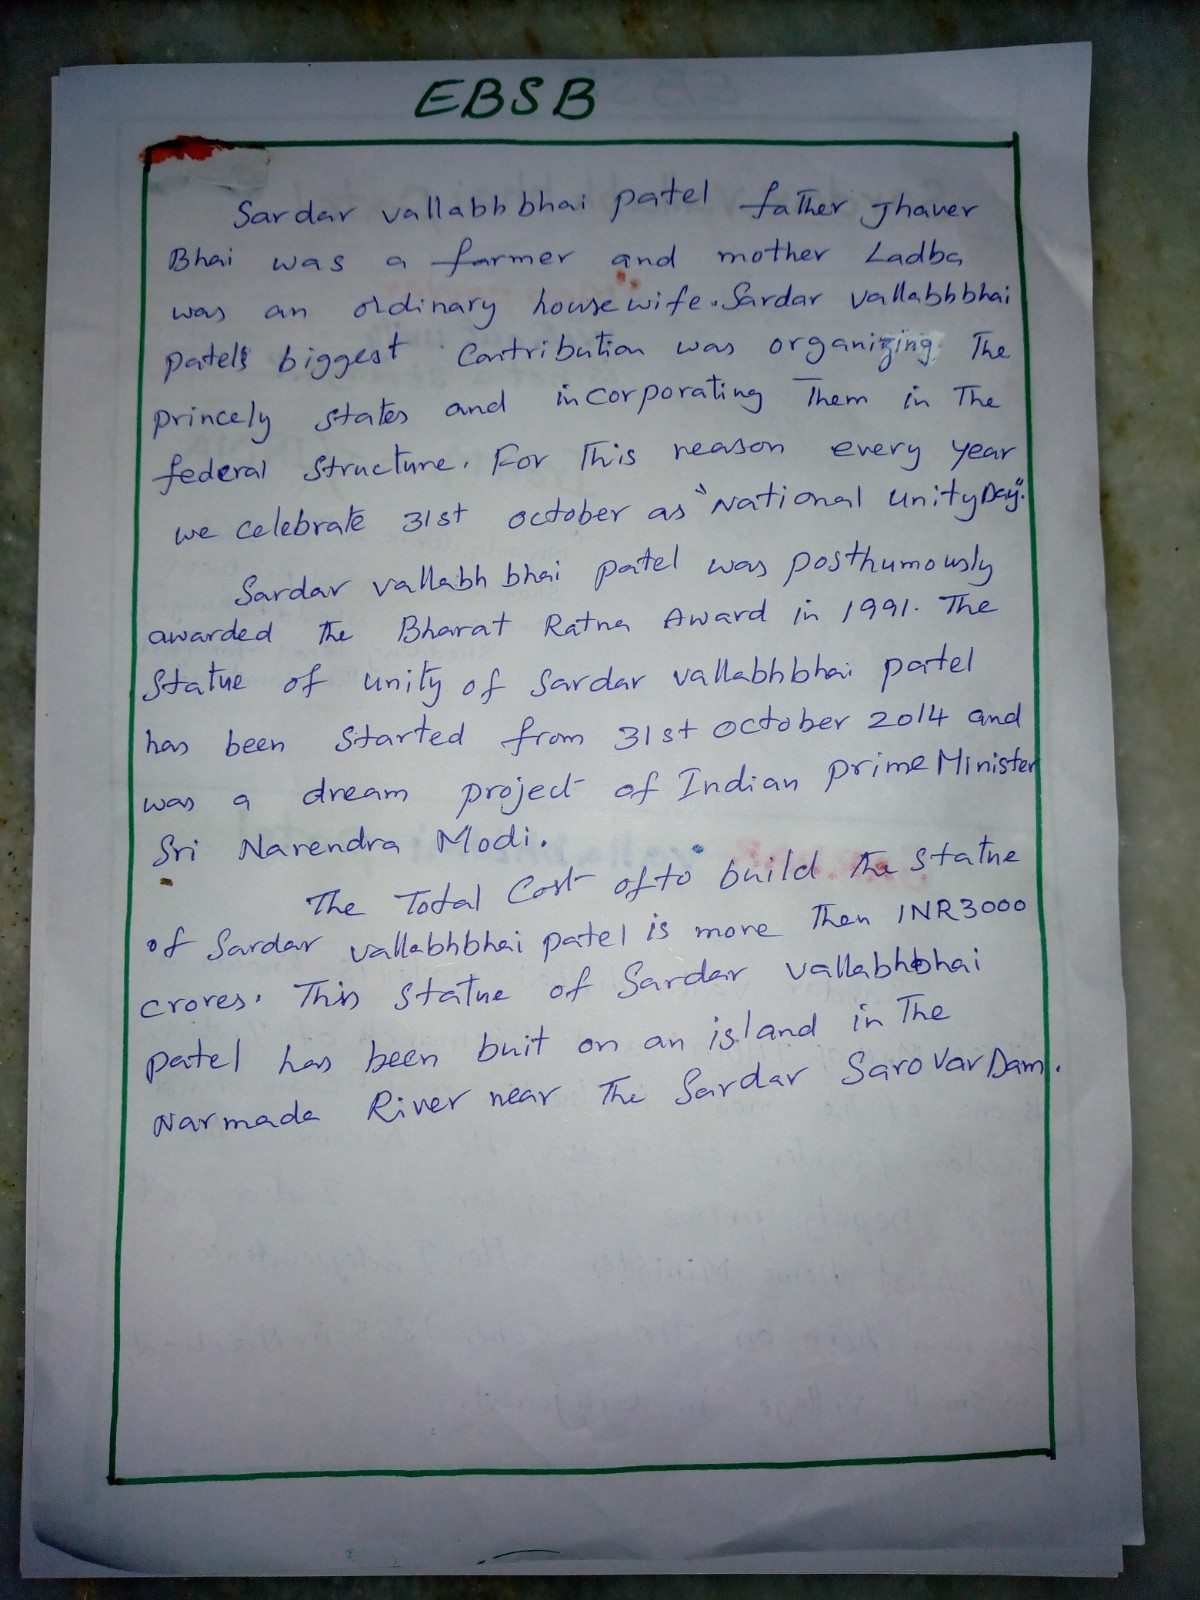 EBSB
Sardar vallabhbhai patel father Jhaver
Bhai was a farmer and mother Ladba
was an ordinary house wife. Sardar vallabhbhai
patel's biggest Contribution was organizing The
princely states and incorporating Them in The
federal structure. For This reason every year
we celebrate 31st october as "National unity Day".
Sardar vallabh bhai patel was posthumously
awarded the Bharat Ratna Award in 1991. The
Statue of unity of Sardar vallabhbhai patel
has been started from 31st october 2014 and
was a dream project of Indian prime Minister
Sri Narendra Modi.
The Total Cost of to build the statue
of Sardar vallabhbhai patel is more Then INR3000
crores. This statue of Sardar vallabhbhai
patel has been buit on an island in The
Narmada River near The Sardar Sarovar Dam.